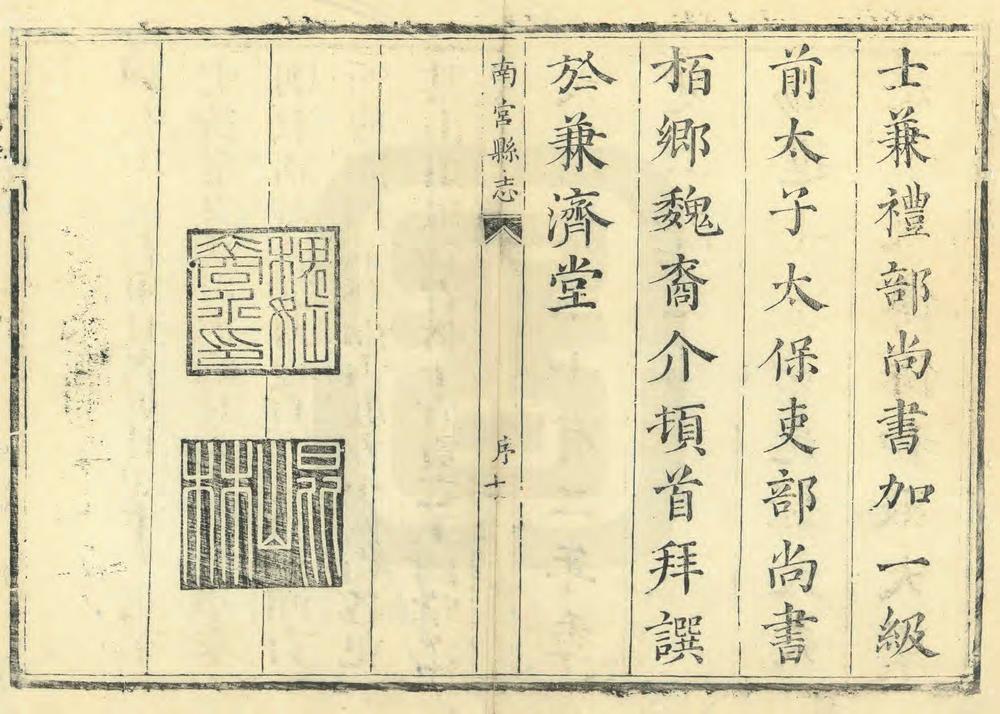 士兼禮部尚書加一級
前太子太保吏部尚書
栢鄉魏裔介頓首拜譔
於兼濟堂
南宮縣志
序 十
魏裔介印
崑林